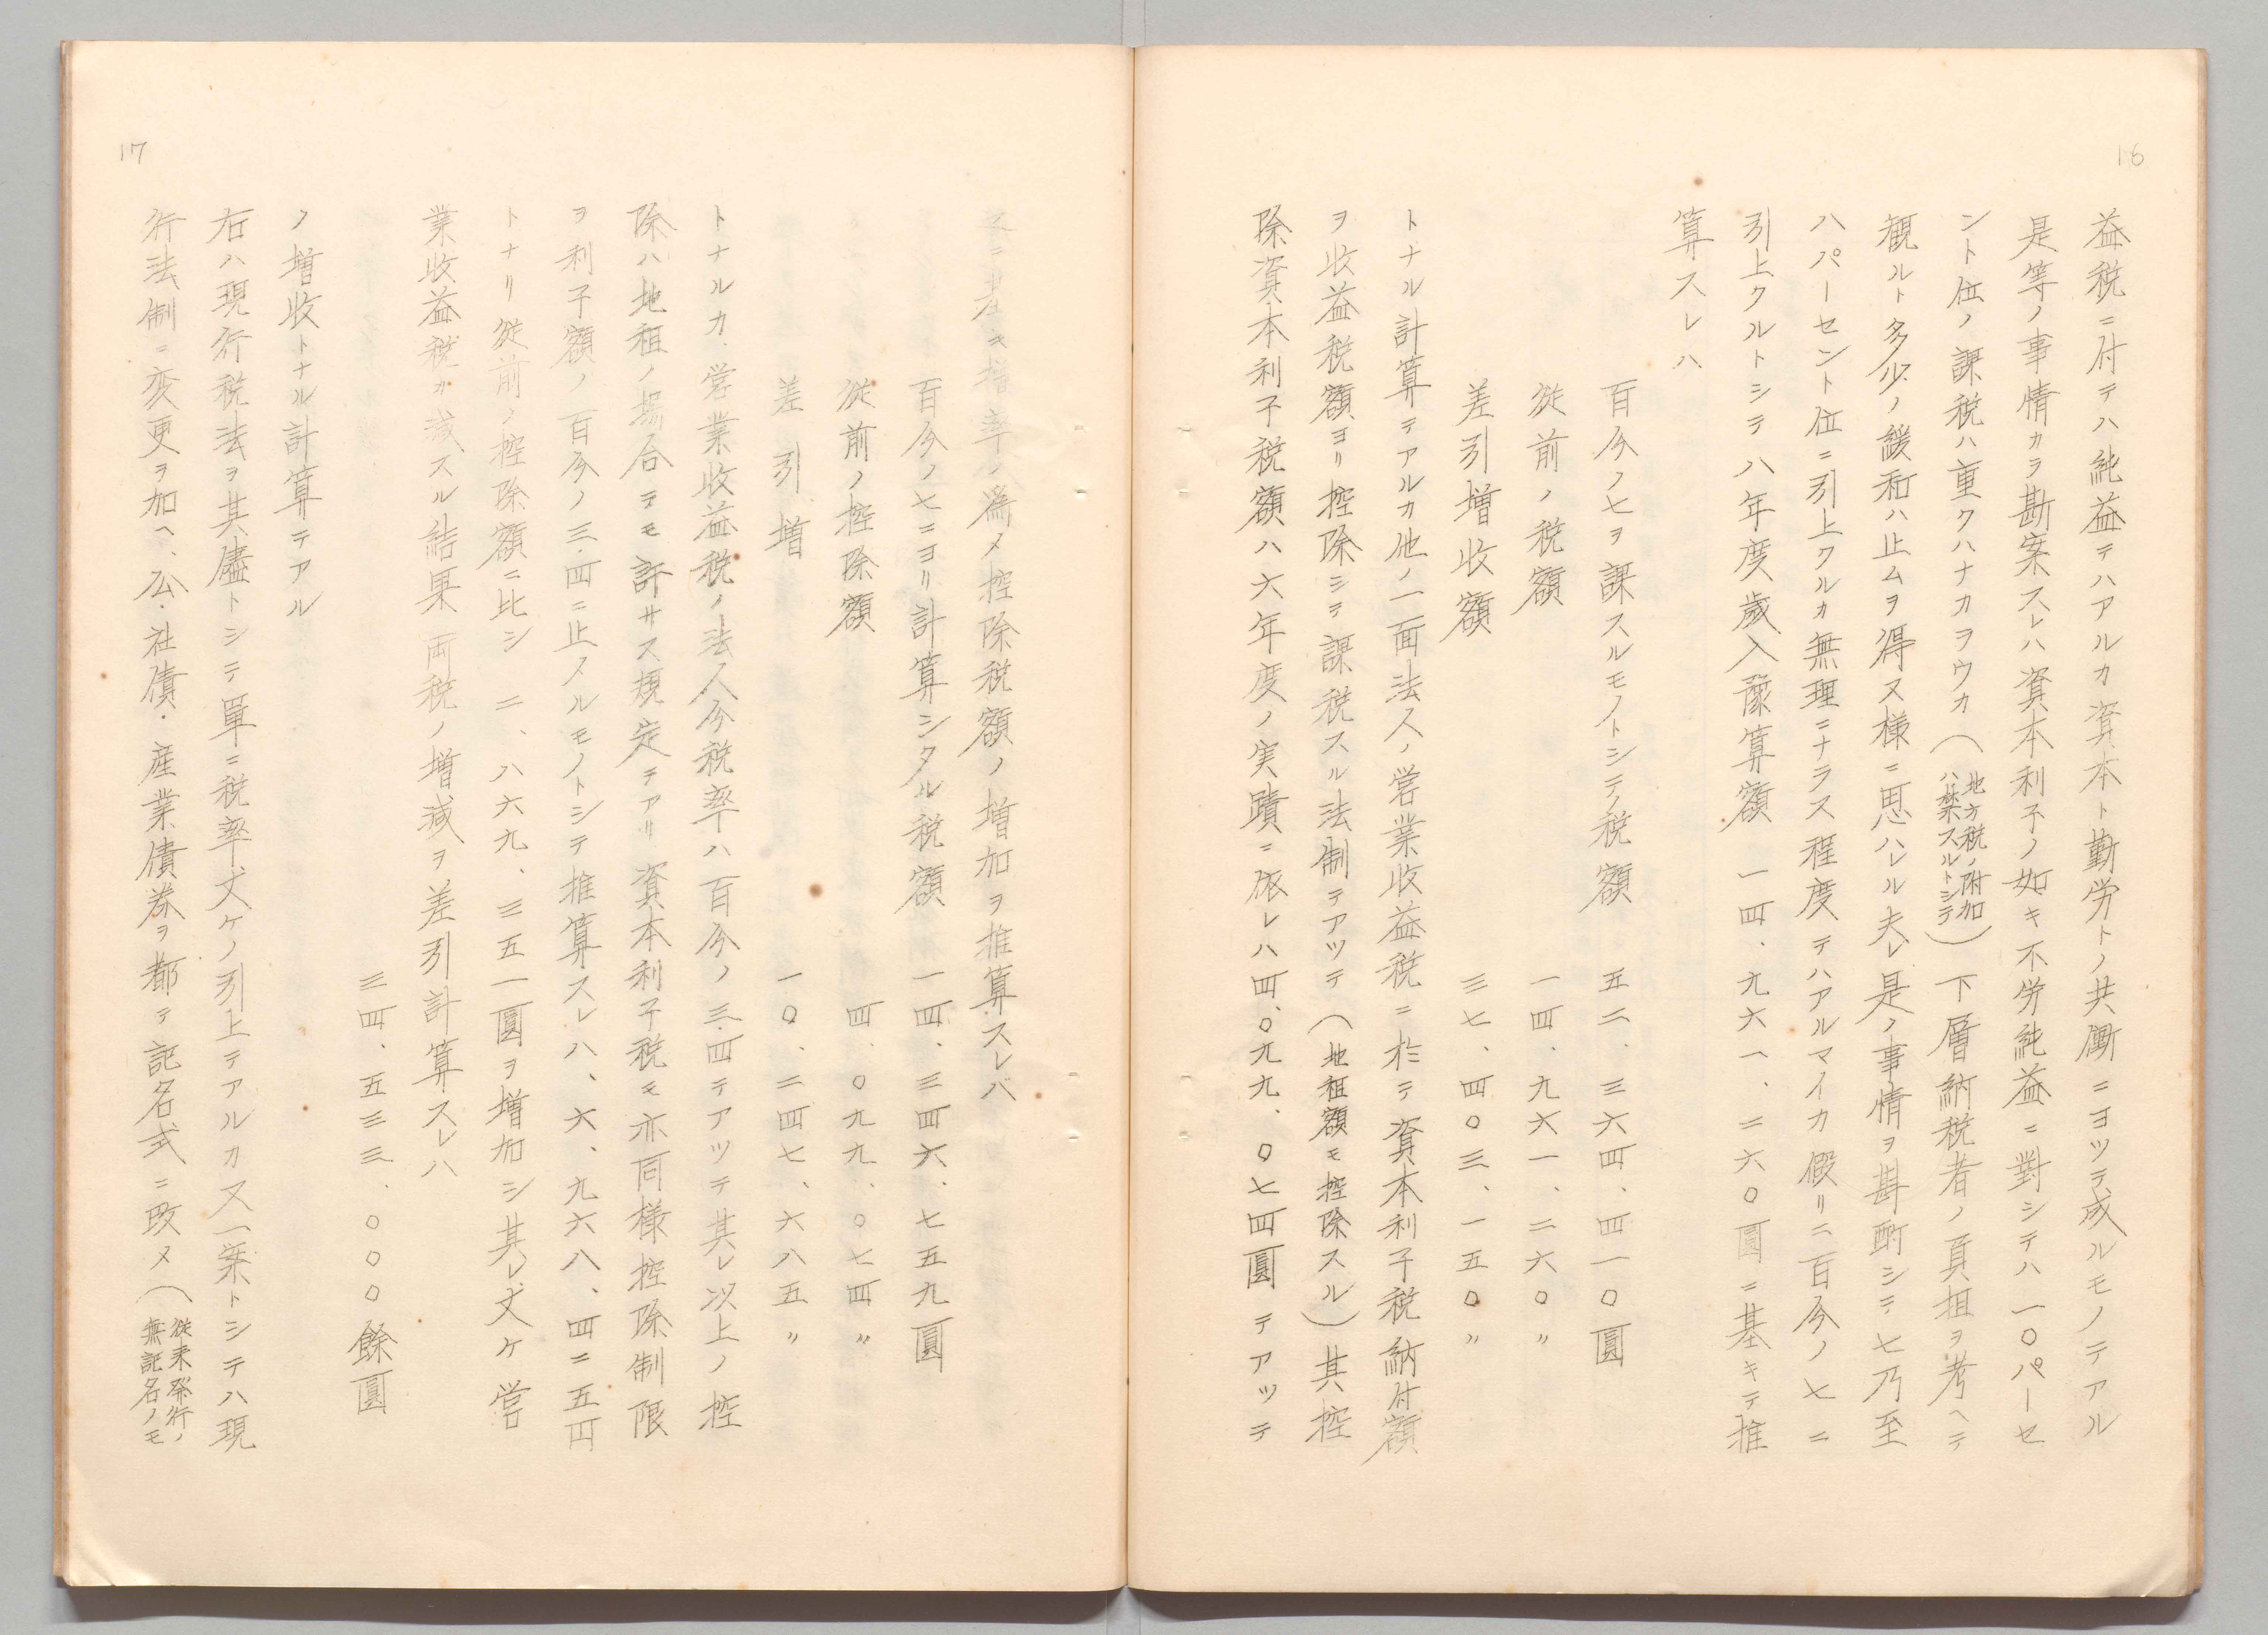 16
益税ニ付テハ純益テハアルカ資本ト勤労トノ共働ニヨツテ成ルモノテアル
是等ノ事情カラ勘案スレハ資本利子ノ如キ不労純益ニ對シテハ一〇パーセ
ント位ノ課税ハ重クハナカラウカ(地方税ノ附加ハ禁スルトシテ)下層納税者ノ負担ヲ考ヘテ
観ルト多少ノ緩和ハ止ムヲ得ヌ様ニ思ハレル夫レ是ノ事情ヲ斟酌シテ七乃至
八パーセント位ニ引上クルカ無理ニナラス程度テハアルマイカ假リニ百分ノ七ニ
引上クルトシテ八年度歳入豫算額一四、九六一、二六〇圓ニ基キテ推
算スレハ
百分ノ七ヲ課スルモノトシテノ税額 五二、三六四、四一〇圓
従前ノ税額 一四、九六一、二六〇〃
差引増收額 三七、四〇三、一五〇〃
トナル計算テアルカ他ノ一面法人ノ営業收益税ニ於テ資本利子税納付額
ヲ收益税額ヨリ控除シテ課税スル法制テアツテ(地租額モ控除スル)其控
除資本利子税額ハ六年度ノ実蹟ニ依レハ四、〇九九、〇七四圓テアツテ
17
之ニ基キ増率ノ為メ控除税額ノ増加ヲ推算スレバ
百分ノ七ニヨリ計算シタル税額 一四、三四六、七五九圓
従前ノ控除額 四、〇九九、〇七四〃
差引増 一〇、二四七、六八五〃
トナルカ営業收益税ノ法人分税率ハ百分ノ三.四テアツテ其レ以上ノ控
除ハ地租ノ場合テモ許サス規定テアリ資本利子税モ亦同様控除制限
ヲ利子額ノ百分ノ三.四ニ止メルモノトシテ推算スレハ、六、九六八、四二五円
トナリ従前ノ控除額ニ比シ二、八六九、三五一圓ヲ増加シ其レ丈ケ営
業收益税カ減スル結果両税ノ増減ヲ差引計算スレハ
三四、五三三、〇〇〇餘圓
ノ増收トナル計算テアル
右ハ現行税法ヲ其儘トシテ單ニ税率丈ケノ引上テアルカ又一案トシテハ現
行法制ニ変更ヲ加ヘ、公・社債・産業債券ヲ都テ記名式ニ改メ(従来発行ノ無記名ノモ